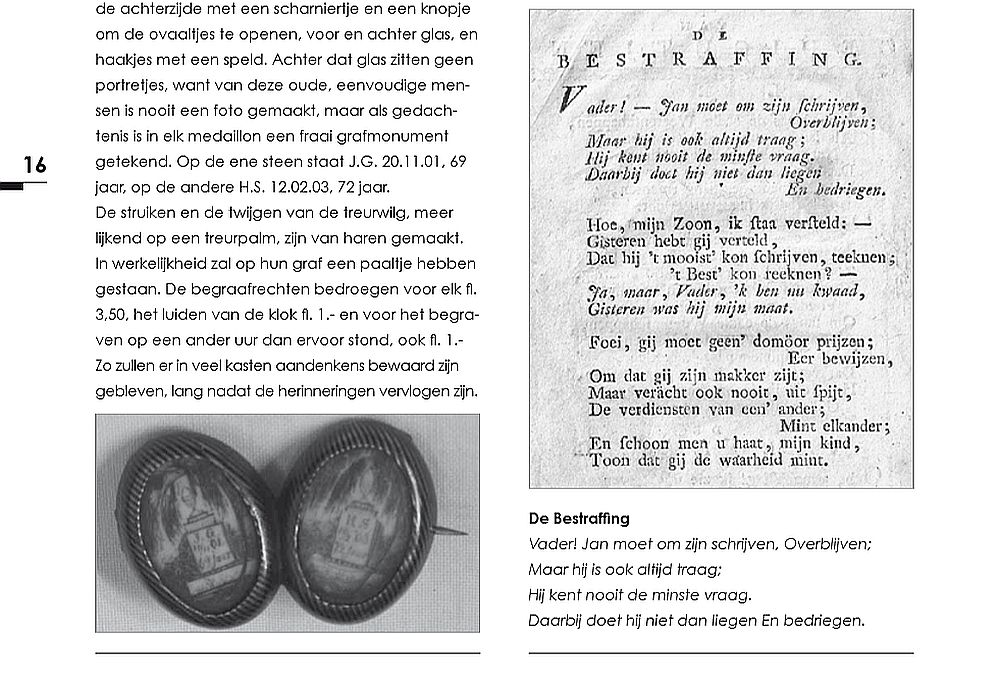 de achterzijde met een scharniertje en een knopje
om de ovaaltjes te openen, voor en achter glas, en
haakjes met een speld. Achter dat glas zitten geen
portretjes, want van deze oude, eenvoudige men-
sen is nooit een foto gemaakt, maar als gedach-
tenis is in elk medaillon een fraai grafmonument
getekend. Op de ene steen staat J.G. 20.11.01, 69
jaar, op de andere H.S. 12.02.03, 72 jaar.
De struiken en de twijgen van de treurwilg, meer
lijkend op een treurpalm, zijn van haren gemaakt.
In werkelijkheid zal op hun graf een paaltje hebben
gestaan. De begraafrechten bedroegen voor elk fl.
3,50, het luiden van de klok fl. 1.- en voor het begra-
ven op een ander uur dan ervoor stond, ook fl. 1.-
Zo zullen er in veel kasten aandenkens bewaard zijn
gebleven, lang nadat de herinneringen vervlogen zijn.
16
J.G
H.S
DE
BESTRAFFING.
Vader! — Jan moet om zijn ſchrijven,
Overblijven;
Maar hij is ook altijd traag;
Hij kent nooit de minſte vraag.
Daarbij doet hij niet dan liegen
En bedriegen.
Hoe, mijn Zoon, ik ſtaa verſteld: —
Gisteren hebt gij verteld,
Dat hij 't mooist' kon ſchrijven, teeknen;
't Best' kon reeknen? —
Ja, maar, Vader, 'k ben nu kwaad,
Gisteren was hij mijn maat.
Foei, gij moet geen' domöor prijzen;
Eer bewijzen,
Om dat gij zijn makker zijt;
Maar veracht ook nooit, uit ſpijt,
De verdiensten van een' ander;
Mint elkander;
En ſchoon men u haat, mijn kind,
Toon dat gij de waarheid mint.
De Bestraffing
Vader! Jan moet om zijn schrijven, Overblijven;
Maar hij is ook altijd traag;
Hij kent nooit de minste vraag.
Daarbij doet hij niet dan liegen En bedriegen.